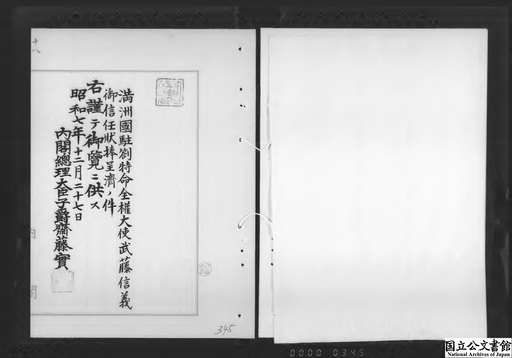 満洲國駐劄特命全權大使武藤信義
御信任狀捧呈濟ノ件
右謹テ御覽ニ供ス
昭和七年十二月二十七日
內閣總理大臣子爵齋藤實
十八
內閣
345
0000 0345
国立公文書館
National Archives of Japan